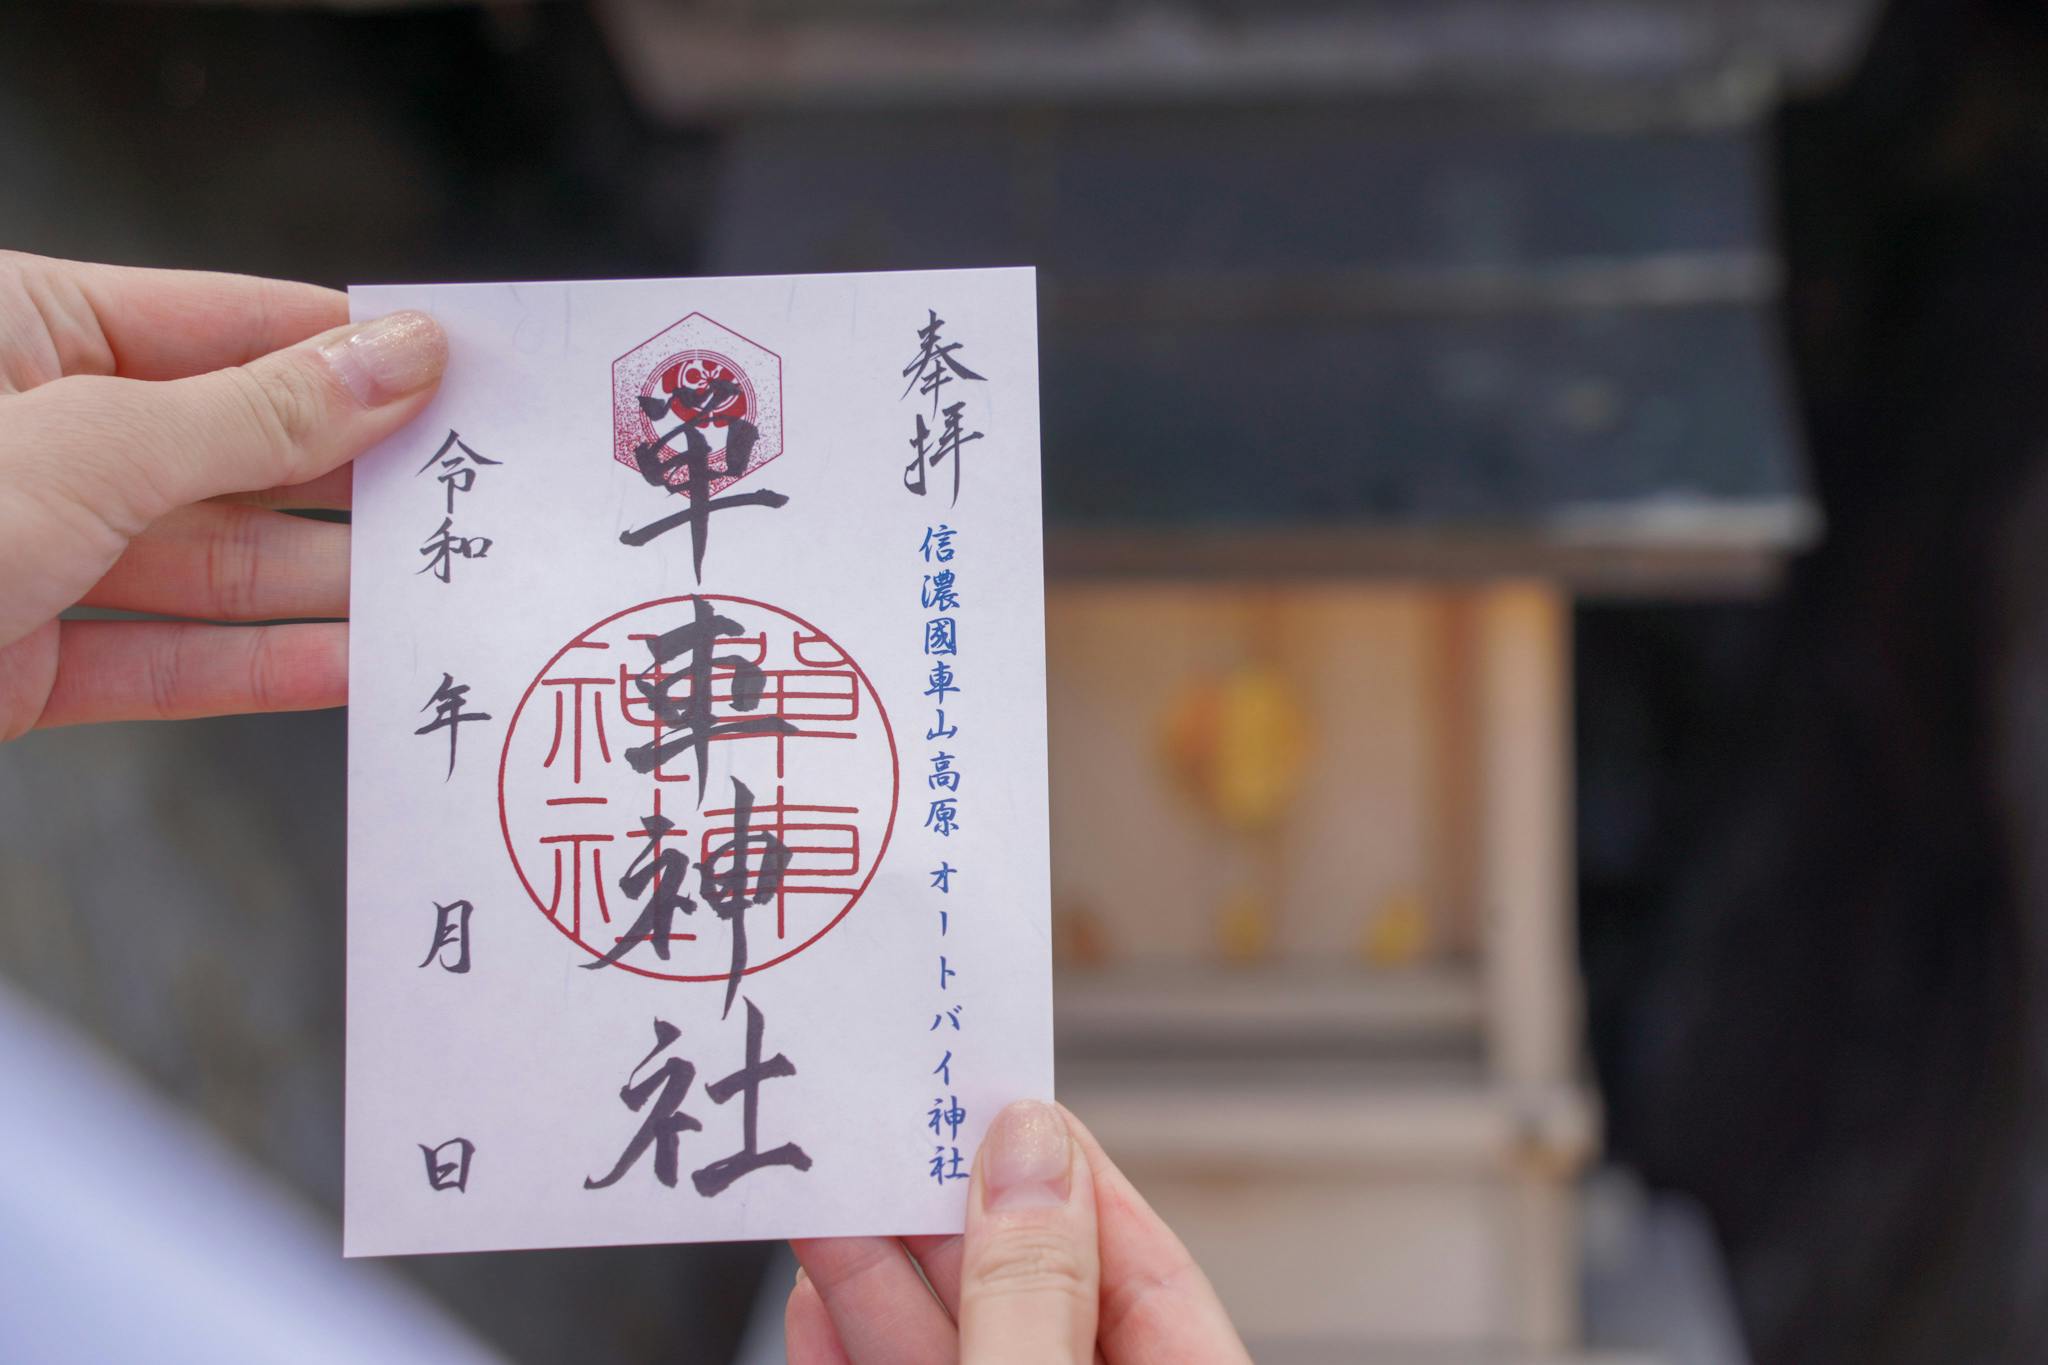 奉拝
信濃國車山高原 オートバイ神社
単車神社
單車神社
令和 年 月 日